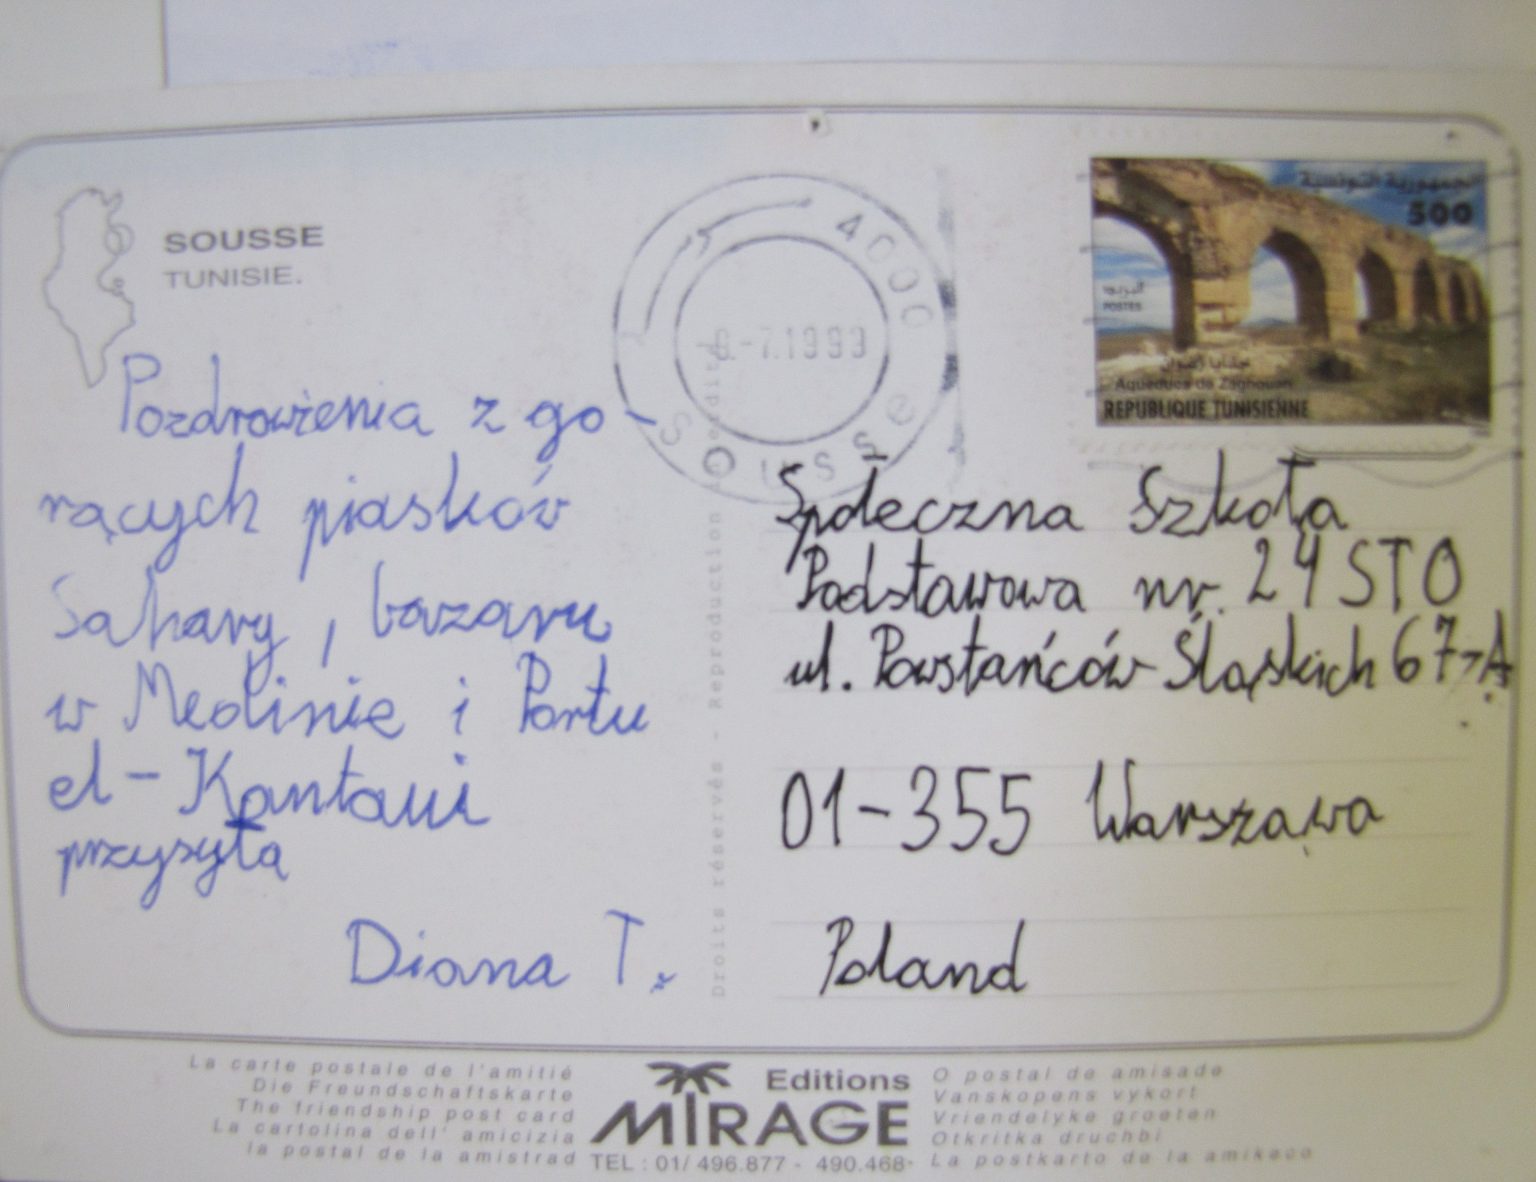 SOUSSE
TUNISIE.
Pozdrowienia z go-
rących piasków
Sahary, bazaru
w Medinie i Portu
el-Kantaui
przysyła
Diana T.
4000
-7.1999
Sousse
الجمهورية التونسية
500
البريد
POSTES
حنايا زغوان
Aqueducs de Zaghouan
REPUBLIQUE TUNISIENNE
Społeczna Szkoła
Podstawowa nr. 24 STO
ul. Powstańców Śląskich 67A
01-355 Warszawa
Poland
Droits réservés - Reproduction interdite
La carte postale de l'amitié
Die Freundschaftskarte
The friendship post card
La cartolina dell' amicizia
la postal de la amistrad
Editions
MIRAGE
TEL : 01/ 496.877 - 490.468-
O postal de amisade
Vanskopens vykort
Vriendelyke groeten
Otkritka druchbi
La postkarto de la amikeco